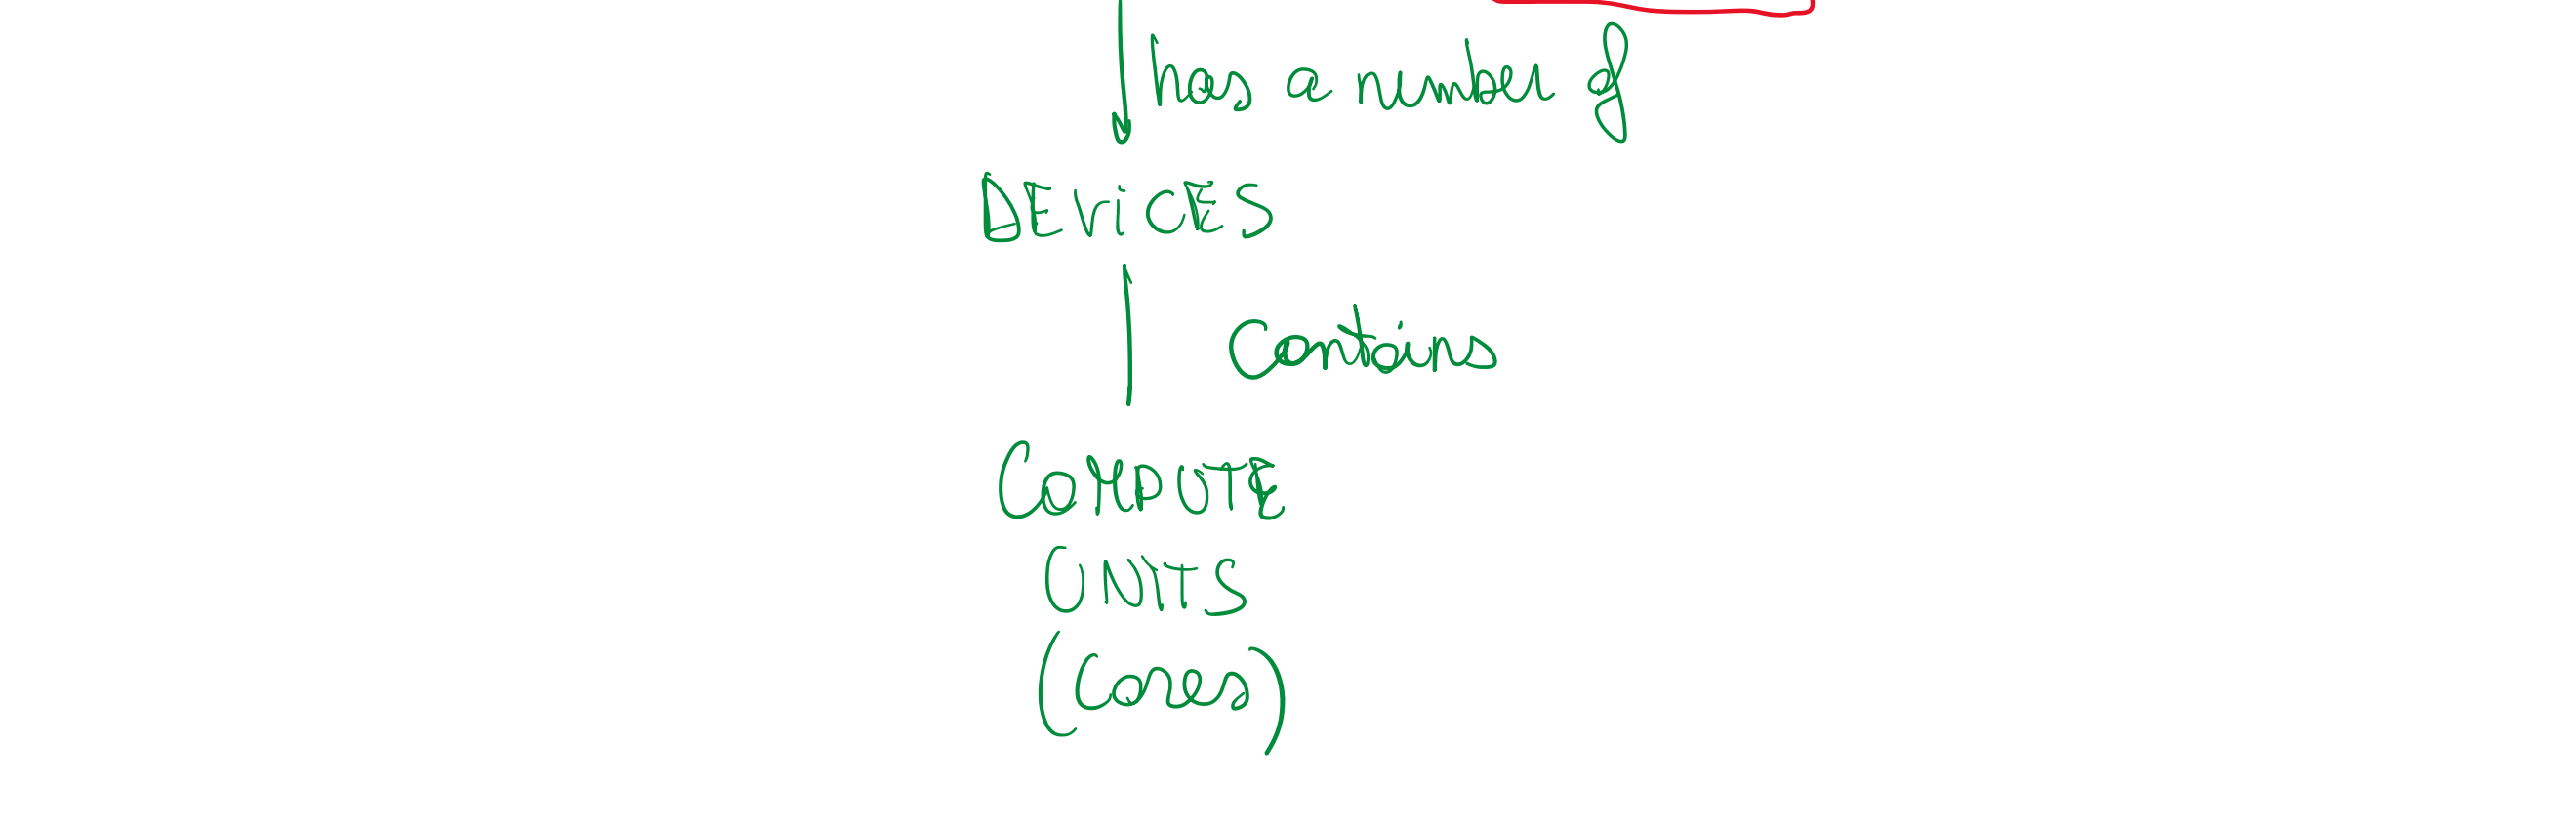 has a number of
DEViCES
Contains
COMPUTE
UNITS
(Cores)